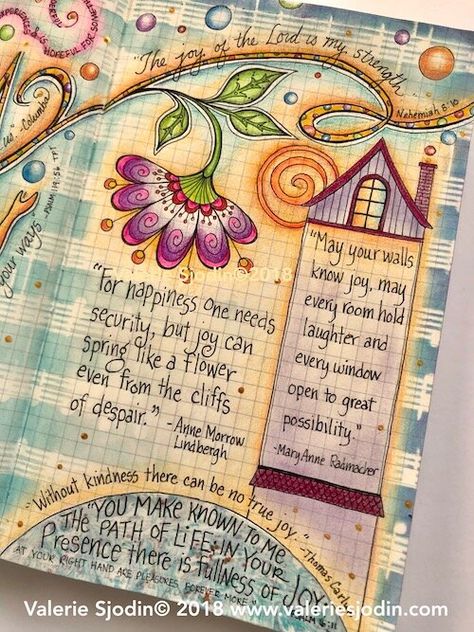 "The joy of the Lord is my strength"
Nehemiah 8:10
us" -Columba
your ways" -PSALM 119:56 TPT
Valerie Sjodin© 2018
"For happiness one needs
security, but joy can
spring like a flower
even from the cliffs
of despair."
-Anne Morrow
Lindbergh
"May your walls
know joy, may
every room hold
laughter and
every window
open to great
possibility."
-MaryAnne Radmacher
"Without kindness there can be no true joy." -Thomas Carl
"YOU MAKE KNOWN TO ME
THE PATH OF LIFE; IN YOUR
Presence there is FULLNESS OF JOY
AT YOUR RIGHT HAND ARE PLEASURES FOREVER MORE."
PSALM 16:11
Valerie Sjodin© 2018 www.valeriesjodin.com